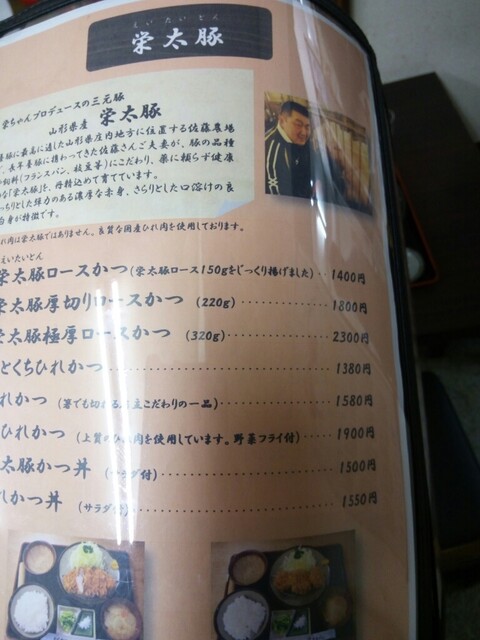 えいたいとん
栄太豚
栄ちゃんプロデュースの三元豚
山形県産 栄太豚
養豚に最高に適した山形県庄内地方に位置する佐藤農場
長年養豚に携わってきた佐藤さんご夫妻が、豚の品種
飼料(フランスパン、枝豆等)にこだわり、薬に頼らず健康
「栄太豚」を、丹精込めて育てています。
っちりとした弾力のある濃厚な赤身、さらりとした口溶けの良
白身が特徴です。
れ肉は栄太豚ではありません。良質な国産ひれ肉を使用しております。
えいたいとん
栄太豚ロースかつ(栄太豚ロース150gをじっくり揚げました)‥1400円
栄太豚厚切りロースかつ (220g)‥‥‥‥‥‥1800円
栄太豚極厚ロースかつ (320g)‥‥‥‥‥‥2300円
とくちひれかつ‥‥‥‥‥‥1380円
れかつ (箸でも切れる 立こだわりの一品)‥‥‥1580円
ひれかつ (上質のひれ肉を使用しています。野菜フライ付)‥‥1900円
太豚かつ丼 (サラダ付)‥‥‥‥‥‥1500円
れかつ丼 (サラダ付)‥‥‥‥‥‥1550円